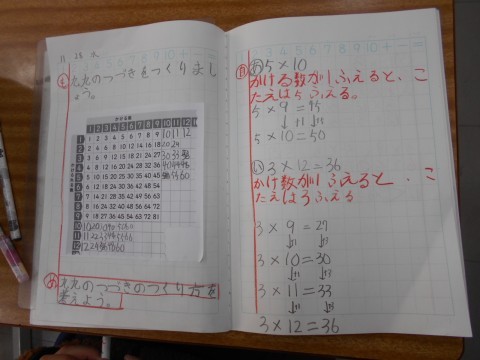 11 28 水
九九のつづきをつくりまし
ょう。
かける数
1 2 3 4 5 6 7 8 9 10 11 12
1 1 2 3 4 5 6 7 8 9 10 11 12
2 2 4 6 8 10 12 14 16 18
3 3 6 9 12 15 18 21 24 27 30 33
4 4 8 12 16 20 24 28 32 36
5 5 10 15 20 25 30 35 40 45
6 6 12 18 24 30 36 42 48 54
7 7 14 21 28 35 42 49 56 63
8 8 16 24 32 40 48 56 64 72
9 9 18 27 36 45 54 63 72 81
10 10 20
11 11 22
12 12 24
め 九九のつづきのつくり方を
考えよう。
あ 5×10
かける数が1ふえると、こ
たえは5ふえる。
5×9=45
5×10=50
い 3×12=36
かけ数が1ふえると、こ
たえは3ふえる
3×9=27
3×10=30
3×11=33
3×12=36